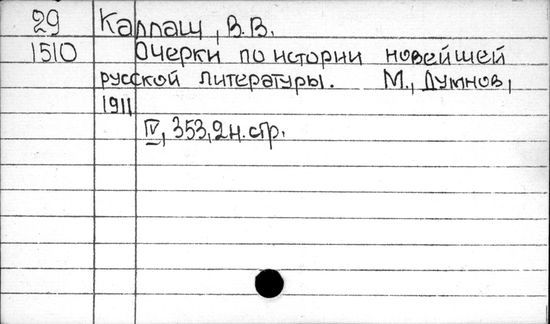 29 Каллаш, В.В.
1510 Очерки по истории новейшей
русской литературы. М., Думнов,
1911
IV, 353, 2 н. стр.